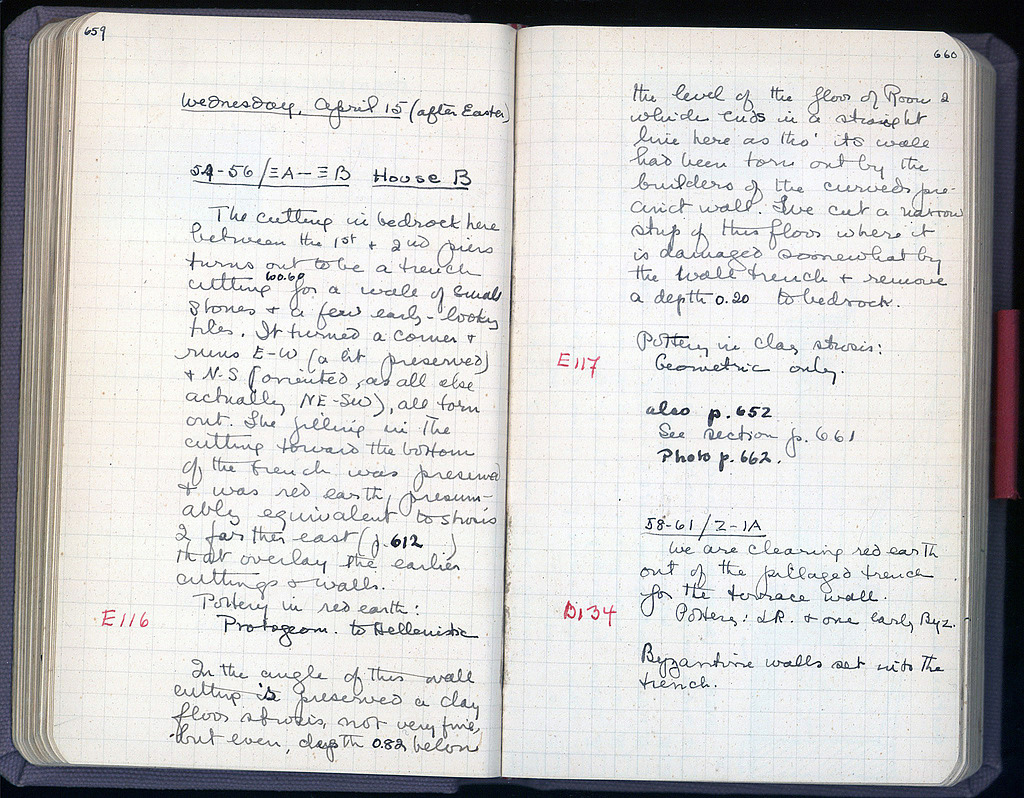 659
Wednesday, April 15 (after Easter)
54-56/ΞA-ΞB House B
The cutting in bedrock here
between the 1st + 2nd piers
turns out to be a trench
cutting 600.60 for a wall of small
stones + a few early-looking
tiles. It turned a corner +
runs E-W (a bit preserved)
+ N-S (oriented, as all else
actually NE-SW), all torn
out. The filling in the
cutting toward the bottom
of the trench was preserved
+ was red earth, presum-
ably equivalent to strosis
2 farther east (p. 612 )
that overlay the earlier
cuttings + walls.
Pottery in red earth:
E116
Protogeom. to Hellenistic
In the angle of this wall
cutting is preserved a clay
floor strosis, not very fine,
but even, depth 0.82 below
660
the level of the floor of Room 2
which ends in a straight
line here as tho' its wall
had been torn out by the
builders of the curved pre-
cinct wall. I've cut a narrow
strip of this floor where it
is damaged somewhat by
the wall trench + remove
a depth 0.20 to bedrock.
Pottery in clay strosis:
E117
Geometric only.
also p. 652
See section p. 661
Photo p. 662.
58-61/Z-IA
We are clearing red earth
out of the pillaged trench
for the terrace wall.
B134
Pottery: LR. + one early Byz.
Byzantine walls set into the
trench.